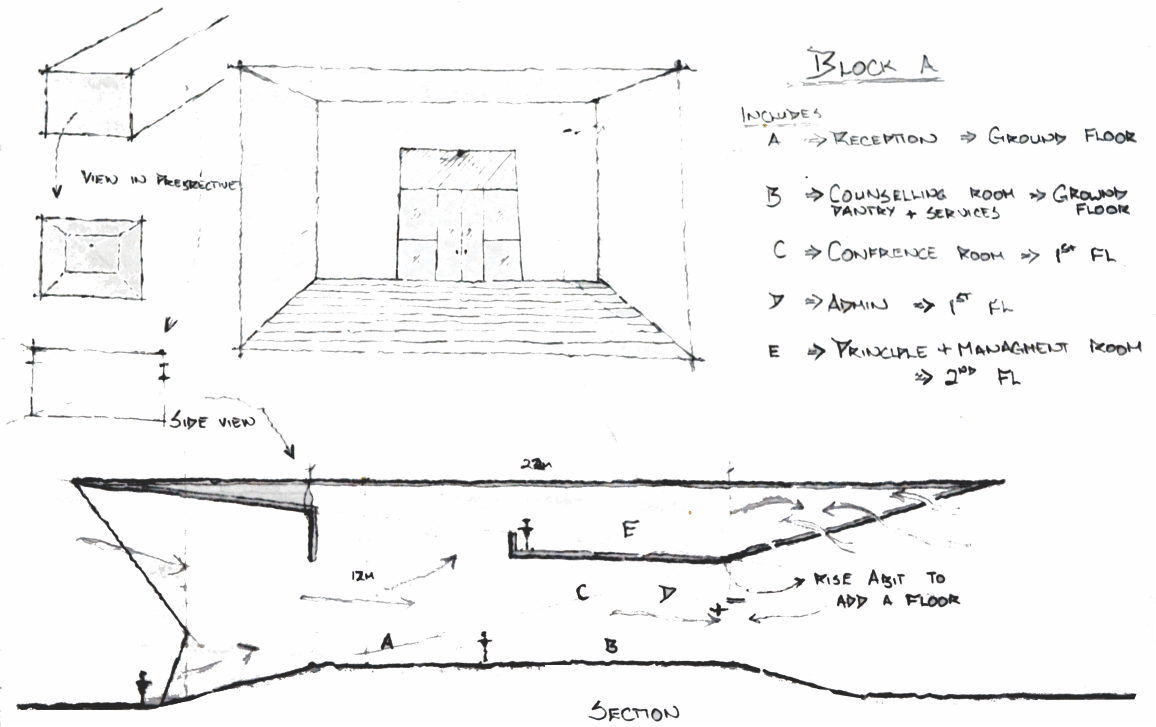 BLOCK A
INCLUDES
A ⇒ RECEPTION ⇒ GROUND FLOOR
B ⇒ COUNSELLING ROOM ⇒ GROUND
PANTRY + SERVICES FLOOR
C ⇒ CONFRENCE ROOM ⇒ 1ST FL
D ⇒ ADMIN ⇒ 1ST FL
E ⇒ PRINCIPLE + MANAGMENT ROOM
⇒ 2ND FL
VIEW IN PRESPECTIVE
SIDE VIEW
22m
E
12M
C D
RISE ABIT TO
ADD A FLOOR
A
B
SECTION